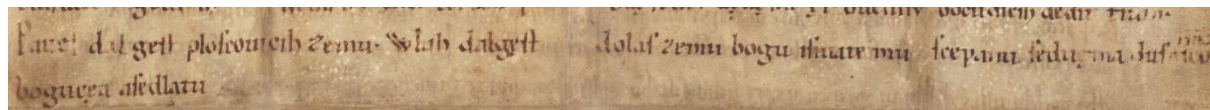 Pauel dal geſt ploſcouicih zemu. Wlah dalgeſt dolaſ zemu bogu iſuiatemu ſcepanu ſeduema duſnicoma
bogucea aſedlatu